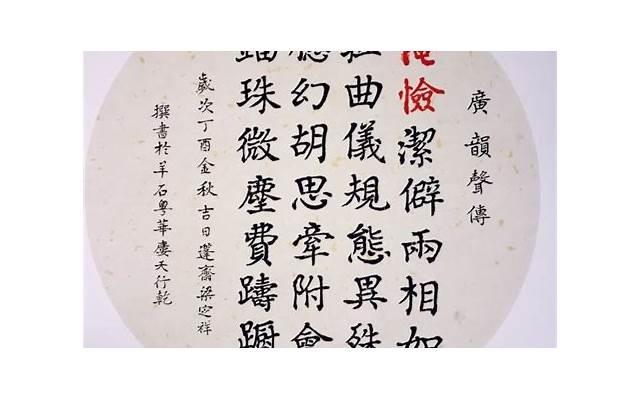 廣韻聲傳
憸潔僻兩相如
曲儀規態異殊
幻胡思牽附會
珠微塵費躊躕
歲次丁酉金秋吉日蓬齋梁定祥
撰書於羊石粵華天行乾